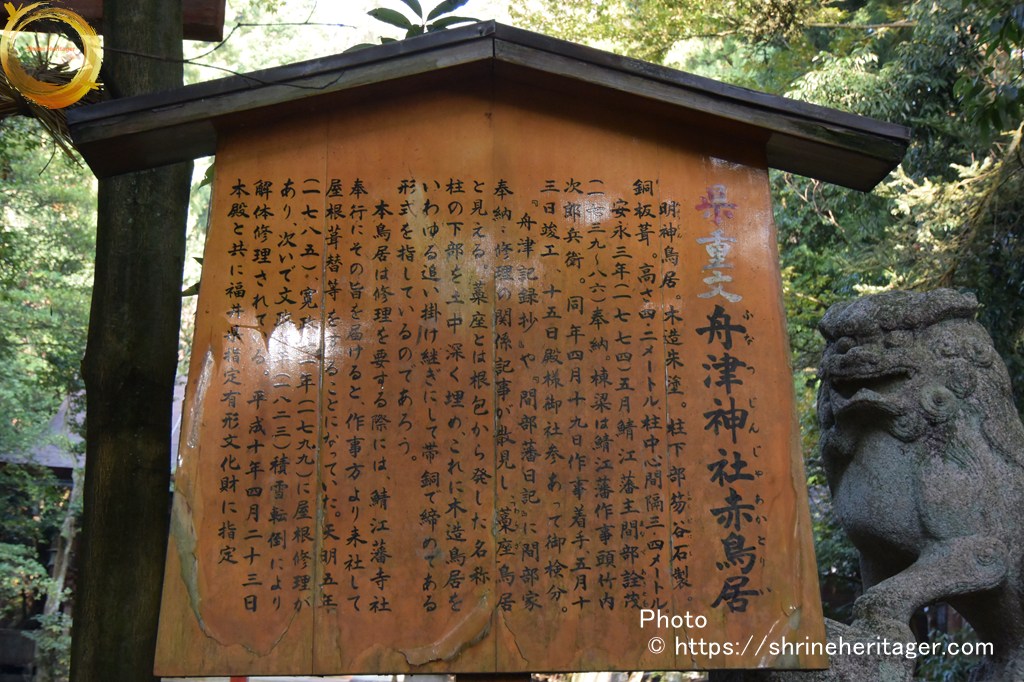 県重文 舟津神社赤鳥居
ふなつじんじゃあかとりい
明神鳥居。木造朱塗。柱下部笏谷石製。
銅板葺。高さ四・二メートル柱中心間隔三・四メートル
安永三年(一七七四)五月鯖江藩主間部詮茂
(一七三九~八六)奉納。棟梁は鯖江藩作事頭竹内
次郎兵衛。同年四月十九日作事着手五月十
三日竣工、十五日殿様御社参あって御検分。
『舟津記録抄』や『間部藩日記』に間部家
奉納・修理の関係記事が散見し、藁座鳥居
と見える。藁座とは根包から発した名称
柱の下部を土中深く埋め、これに木造鳥居を
いわゆる追い掛け継ぎにして帯銅で締めてある
形式を指しているのであろう。
本鳥居は修理を要する際には、鯖江藩寺社
奉行にその旨を届けると、作事方より来社して
屋根葺替等をすることになっていた。天明五年
(一七八五)、寛政 年(一七九九)に屋根修理が
あり、次いで文政 年(一八二三)積雪転倒により
解体修理されている。平成十年四月二十三日
本殿と共に福井県指定有形文化財に指定
Photo
© https://shrineheritager.com